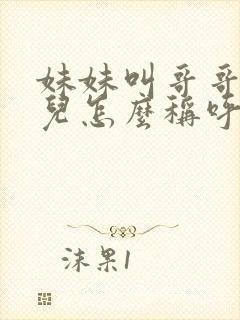 妹妹叫哥哥
兒怎麼稱呼
沫果1